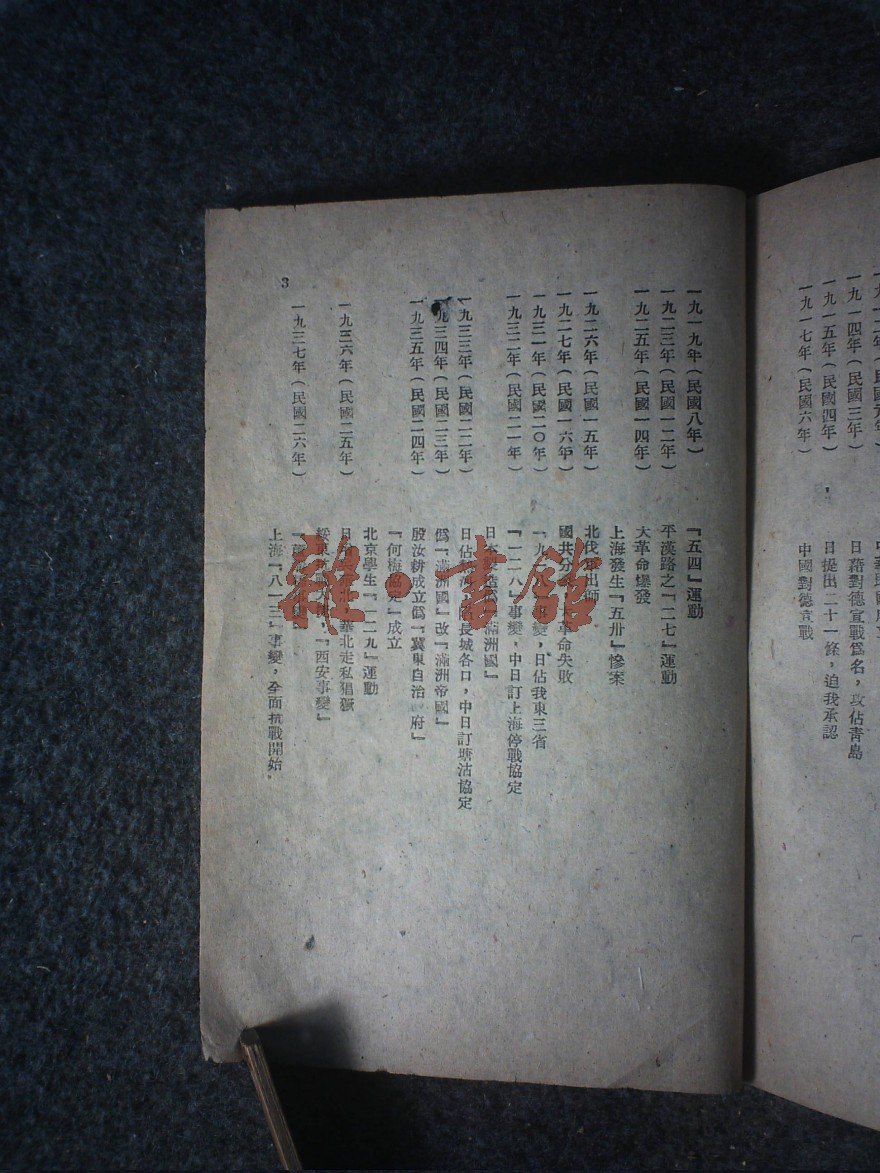 一九一四年（民國三年） 日藉對德宣戰爲名，攻佔青島
一九一五年（民國四年） 日提出二十一條，迫我承認
一九一七年（民國六年） 中國對德宣戰
一九一九年（民國八年） 『五四』運動
一九二三年（民國一二年） 平漢路之『二七』運動
一九二五年（民國一四年） 大革命爆發
上海發生『五卅』慘案
一九二六年（民國一五年） 北伐軍出師
一九二七年（民國一六年） 國共分 革命失敗
一九三一年（民國二〇年） 『九一八』事變，日佔我東三省
一九三二年（民國二一年） 『一二八』事變，中日訂上海停戰協定
日本製造僞『滿洲國』
一九三三年（民國二二年） 日佔熱河， 長城各口，中日訂塘沽協定
一九三四年（民國二三年） 僞『滿洲國』改『滿洲帝國』
一九三五年（民國二四年） 殷汝耕成立僞『冀東自治政府』
『何梅協定』成立
北京學生『一二九』運動
一九三六年（民國二五年） 日 華北走私猖獗
綏東 『西安事變』
一九三七年（民國二六年）
上海『八一三』事變，全面抗戰開始．
3
雜·書館